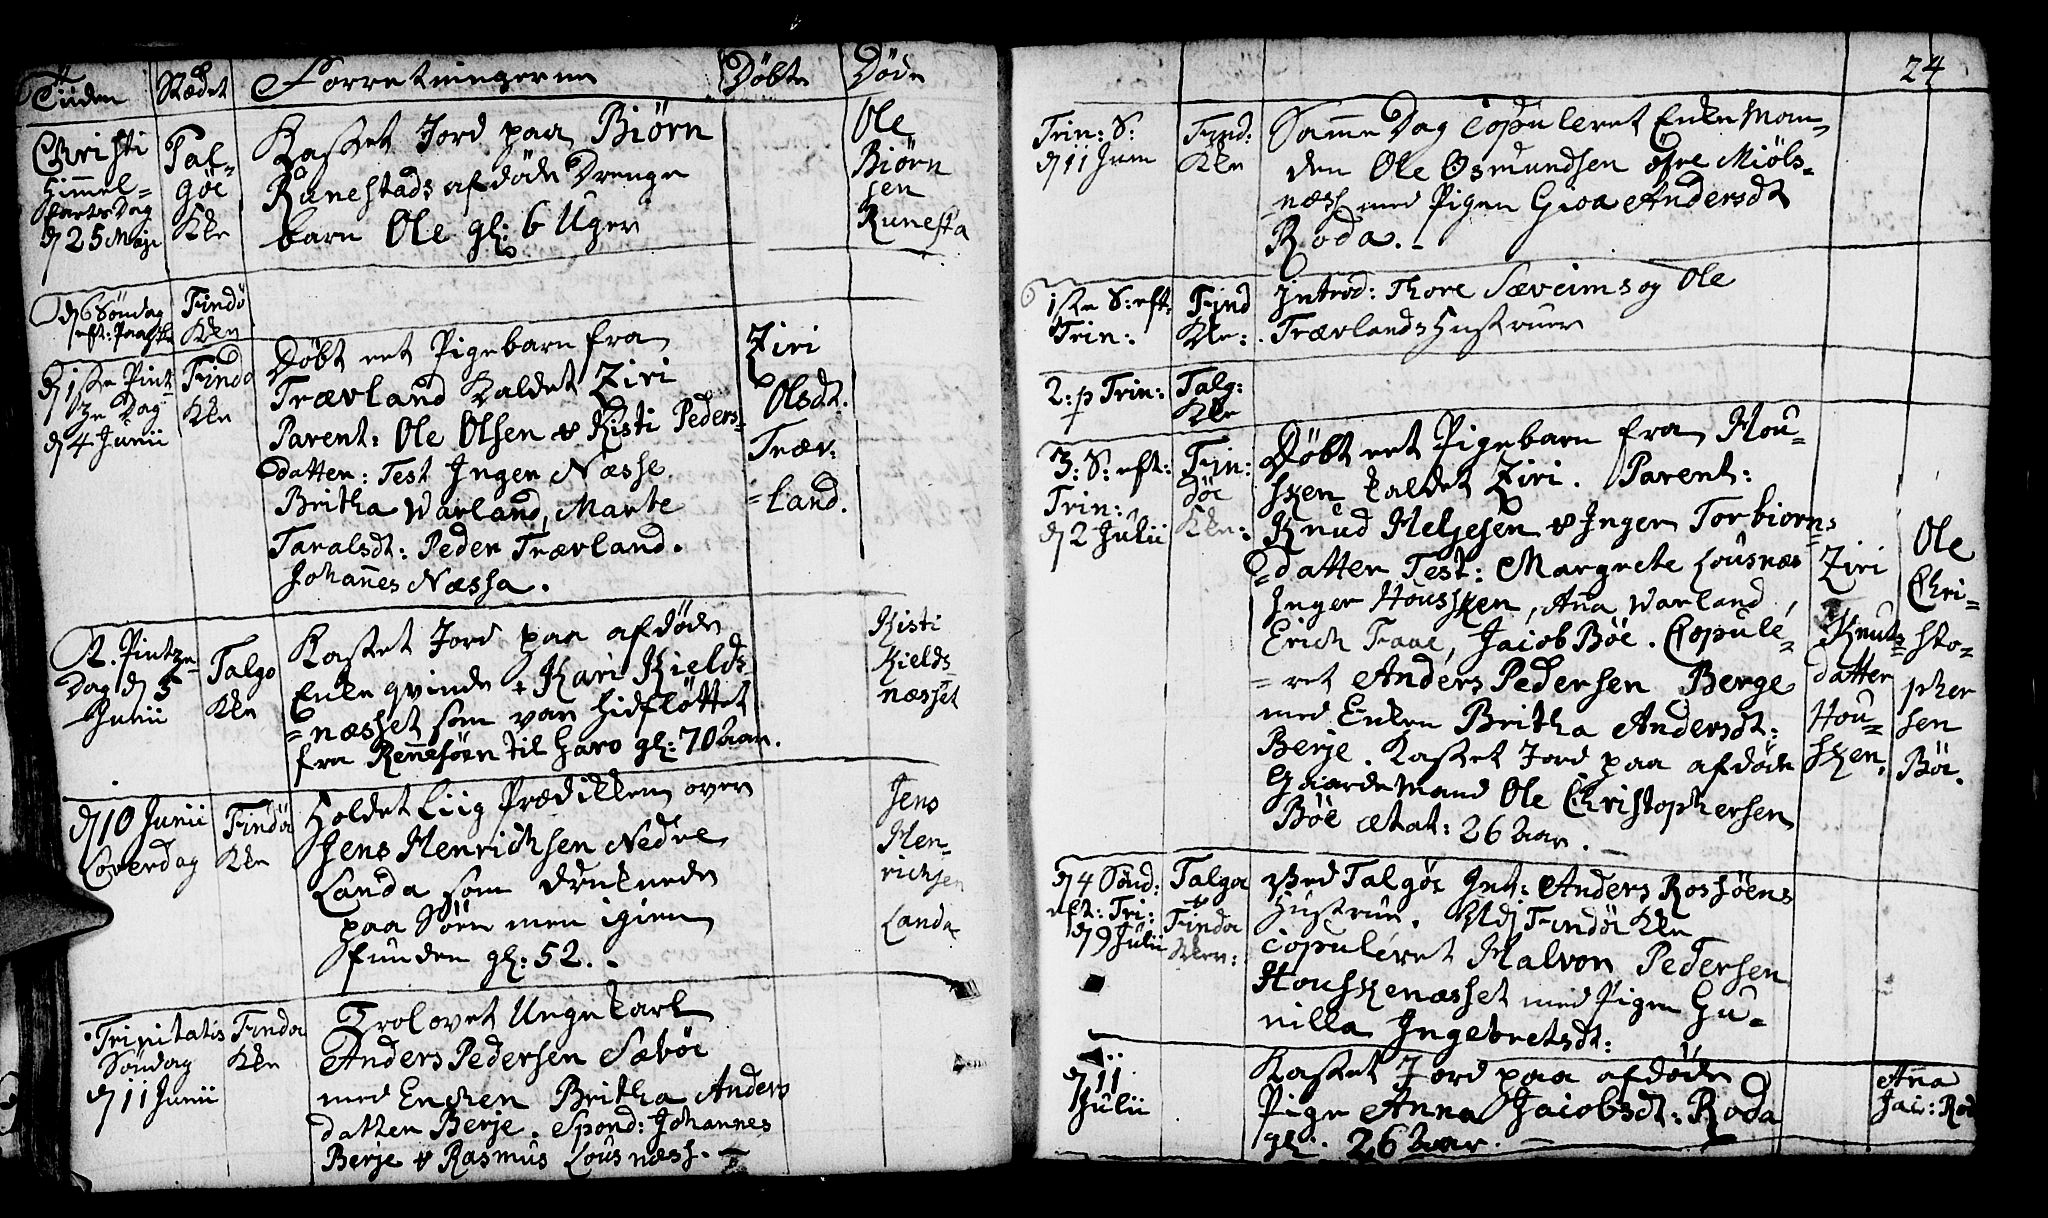 Tiiden Stædet Forretningerne Døbte Døde
Christi
Himmel-
fartsDag
d 25 Maje
Tal-
göe
Kke
Kastet Jord paa Biørn
Runestads afdöde Drenge
barn Ole gl: 6 Uger
Ole
Biørn
sen
Runesta
d 6 Söndag
eft: Paaske
Findö
Kke
d 1ste Pint
ze Dag
d 4 Junii
Findö
Kke
Döbt eet Pigebarn fra
Trævland kaldet Ziri
Parent: Ole Olsen & Kisti Peders-
datter: Test Inger Næsse
Britha Warland, Marte
Taralsdt: Peder Trævland.
Johannes Næssa.
Ziri
Olsdt.
Træv-
land.
2. Pintze
Dag d 5
Junii
Talgo
Kke
Kastet Jord paa afdöde
Enke qvinde Kari Kields-
næsset som var hidflöttet
fra Rennesöen til Haro gl: 70 aar.
Kisti
Kields
næsset
d 10 Junii
Löverdag
Findöe
Kke
Holdet Liig Prædikken over
Jens Henrichsen Nedre
Landa som druknede
paa Söen men igien
funden gl: 52.
Jens
Hen-
richsen
Landa
Trinitatis
Söndag
d 11 Junii
Findöe
Kke
Trolovet Ungekarl
Anders Pedersen Sævöe
med Encken Britha Anders
datter Berje. Spond: Johannes
Berje & Rasmus Lousnæss.
24
Trin: S:
d 11 Junii
Find:
Kke
Samme Dag Copuleret Enke Man-
den Ole Osmundsen öfre Miöls-
næss med Pigen Gioa Andersdt
Roda.
1ste S: eft:
Trin:
Find
Kke:
Introd: Thore Sæveims og Ole
Trævlands Hustruer
2: p Trin:
Talg:
Kke
3: S: eft:
Trin:
d 2 Julii
Fin:
döe
Kke:
Döbt eet Pigebarn fra Hou-
sken kaldet Ziri. Parent:
Knud Helgesen & Inger Torbiorns
datter Test: Margrete Lousnæs
Inger Housken, Ana Warland,
Erich Faae, Jacob Böe. Copule-
ret Anders Pedersen Berge
med Enken Britha Andersdt:
Berje. Kastet Jord paa afdöde
Gaardemand Ole Christophersen
Böe ætat: 26 aar.
Ziri
Knuts-
datter
Hou-
sken.
Ole
Chri-
sto-
pher
sen
Böe.
d 4 Sönd:
eft: Tri:
d 9 Julii
Talgöe
&
Findöe
Kker:
Ved Talgöe Int: Anders Rossöens
Hustrue. Ved Findöe Kke
Copuleret Halvor Pedersen
Houskenæsset med Pigen Gu-
nilla Ingebretsdt:
d 11
Julii
Kastet Jord paa afdöde
Pige Anna Jacobsdt: Roda
gl: 26 aar.
Ana
Jac: Rod